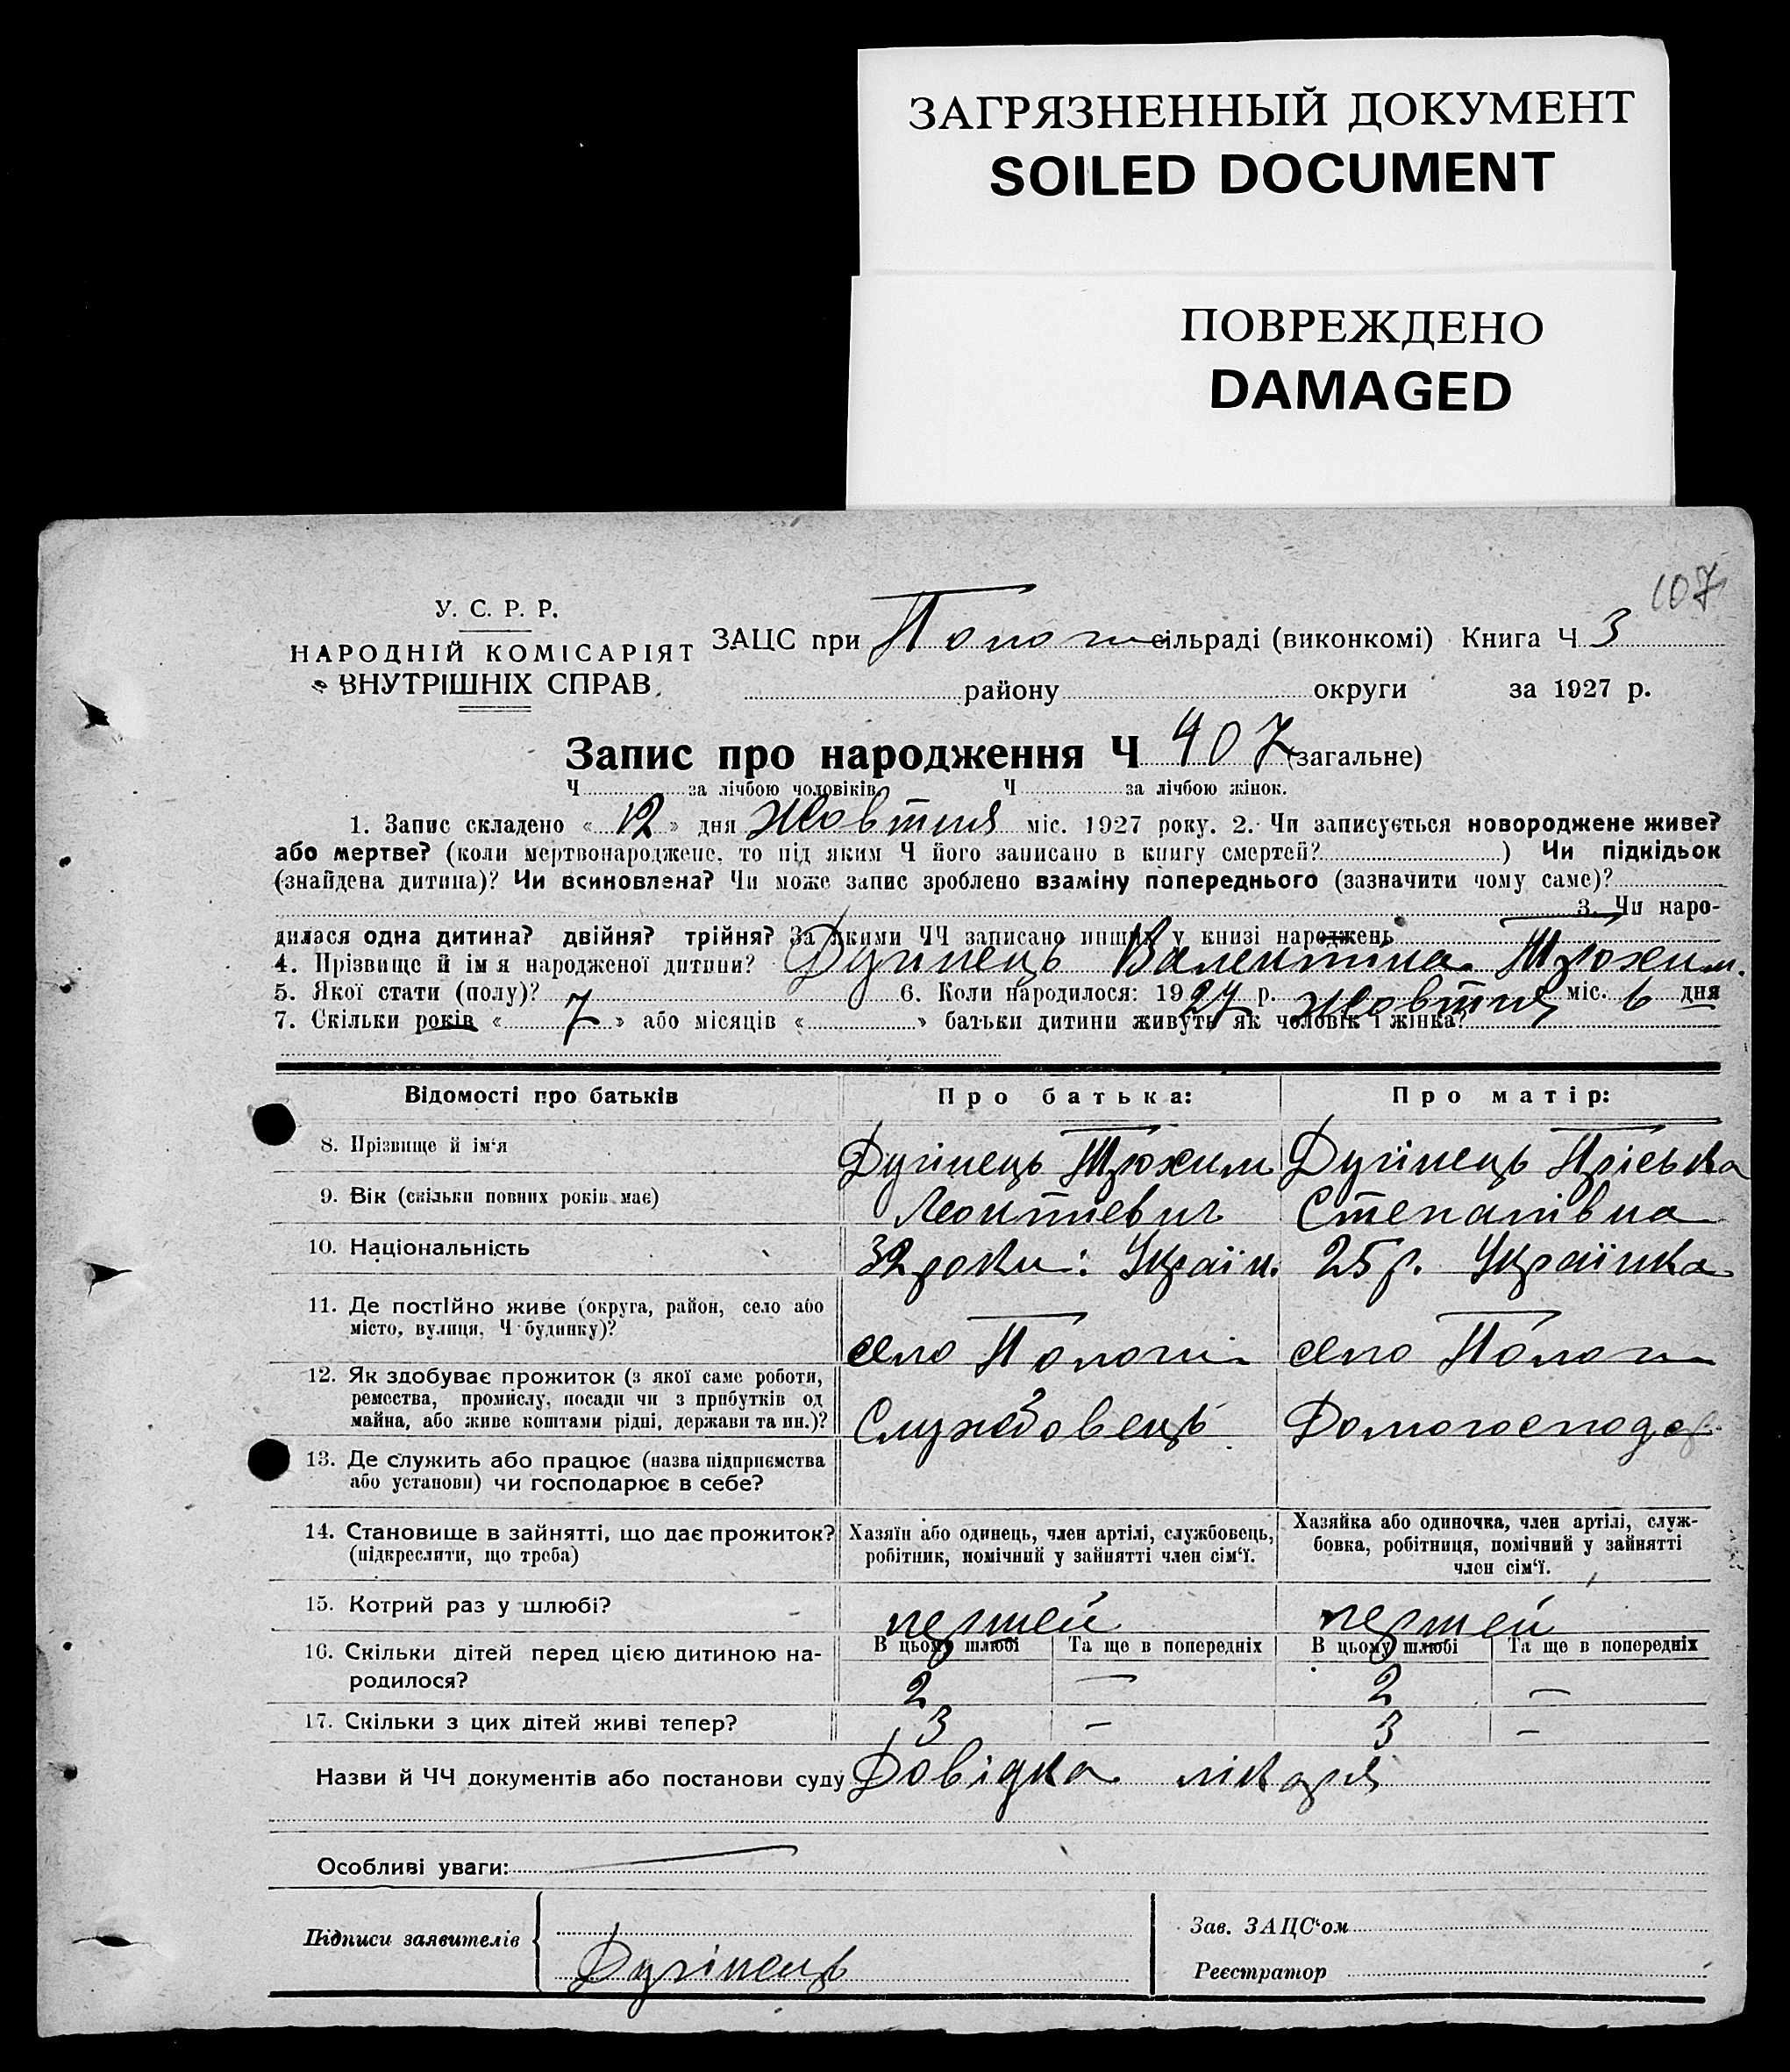 ЗАГРЯЗНЕННЫЙ ДОКУМЕНТ
SOILED DOCUMENT
ПОВРЕЖДЕНО
DAMAGED
107
У. С. Р. Р.
НАРОДНІЙ КОМІСАРІЯТ
ВНУТРІШНІХ СПРАВ
ЗАЦС при Полог сільраді (виконкомі) Книга Ч 3
району округи за 1927 р.
Запис про народження Ч 407 (загальне)
Ч за лічбою чоловіків Ч за лічбою жінок.
1. Запис складено « 12 » дня Жовтня міс. 1927 року. 2. Чи записується новороджене живе?
або мертве? (коли мертвонароджене, то під яким Ч його записано в книгу смертей? ) Чи підкідьок
(знайдена дитина)? Чи всиновлена? Чи може запис зроблено взаміну попереднього (зазначити чому саме)?
3. Чи наро-
дилася одна дитина? двійня? трійня? За якими ЧЧ записано инших у книзі народжень
4. Прізвище й ім'я народженої дитини? Дугінець Валентина Трохим.
5. Якої стати (полу)? 6. Коли народилося: 1927 р. Жовтня міс. 6 дня
7. Скільки років « 7 » або місяців « » батьки дитини живуть як чоловік і жінка?
Відомості про батьків Про батька: Про матір:
8. Прізвище й ім'я Дугінець Трохим Дугінець Пріська
9. Вік (скільки повних років має) Леонтіевич Степанівна
10. Національність 32 роки: Україн. 25 р. Українка
11. Де постійно живе (округа, район, село або
місто, вулиця, Ч будинку)? село Пологи село Пологи
12. Як здобуває прожиток (з якої саме роботи,
ремества, промислу, посади чи з прибутків од
майна, або живе коштами рідні, держави та ин.)? Службовець Домогосподар
13. Де служить або працює (назва підприємства
або установи) чи господарює в себе?
14. Становище в зайнятті, що дає прожиток?
(підкреслити, що треба)
Хазяїн або одинець, член артілі, службовець,
робітник, помічний у зайнятті член сім'ї.
Хазяйка або одиночка, член артілі, служ-
бовка, робітниця, помічний у зайнятті
член сім'ї.
15. Котрий раз у шлюбі? першей першей
В цьому шлюбі Та ще в попередніх В цьому шлюбі Та ще в попередніх
16. Скільки дітей перед цією дитиною на-
родилося? 2 — 2 —
17. Скільки з цих дітей живі тепер? 3 — 3 —
Назви й ЧЧ документів або постанови суду Довідка лікаря
Особливі уваги:
Підписи заявителів Дугінець
Зав. ЗАЦС'ом
Реєстратор